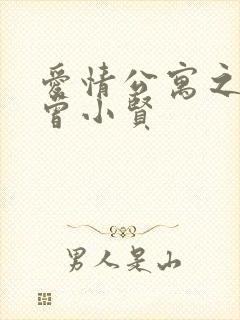 愛情公寓之
曾小賢
男人是山